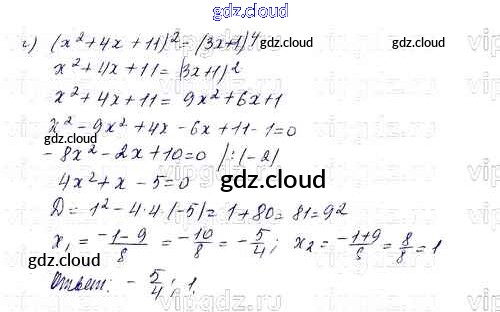 gdz.cloud
г) (x²+4x+11)²=(3x+1)⁴
gdz.cloud gdz.cloud
x²+4x+11=(3x+1)²
x²+4x+11=9x²+6x+1
x²-9x²+4x-6x+11-1=0
-8x²-2x+10=0 |:(-2)
gdz.cloud
4x²+x-5=0
gdz.cloud
D=1²-4·4·(-5)=1+80=81=9²
x₁=(-1-9)/8=-10/8=-5/4; x₂=(-1+9)/8=8/8=1
gdz.cloud gdz.cloud
Ответ: -5/4; 1.